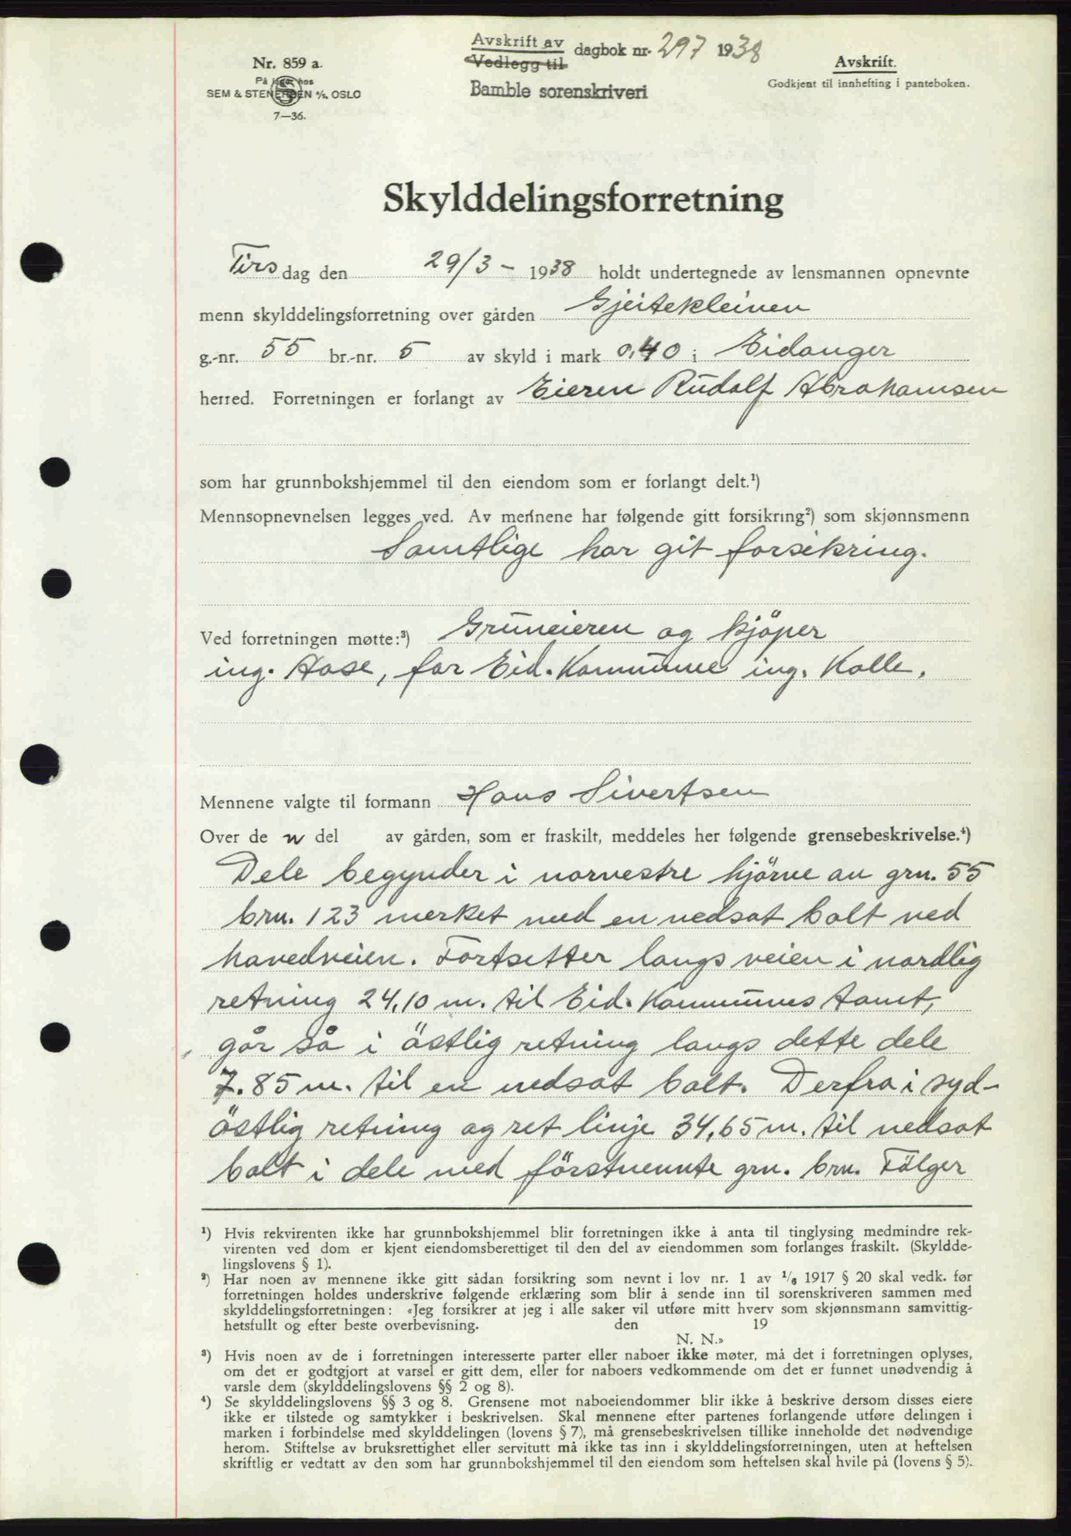 Nr. 859 a.
På lager hos
SEM & STENERSEN A/S, OSLO
7—36.
Avskrift av
Vedlegg til
dagbok nr. 297 1938
Bamble sorenskriveri
Avskrift.
Godkjent til innhefting i panteboken.
Skylddelingsforretning
Tirsdag den 29/3 - 1938 holdt undertegnede av lensmannen opnevnte
menn skylddelingsforretning over gården Gjeitekleiven
g.-nr. 55 br.-nr. 5 av skyld i mark 0,40 i Eidanger
herred. Forretningen er forlangt av Eieren Rudolf Abrahamsen
som har grunnbokshjemmel til den eiendom som er forlangt delt.¹)
Mennsopnevnelsen legges ved. Av mennene har følgende gitt forsikring²) som skjønnsmenn
Samtlige har git forsikring.
Ved forretningen møtte:³) Gruneieren og kjöper
ing. Aase, for Eid. Kommune ing. Kolle.
Mennene valgte til formann Hans Sivertsen
Over de n del av gården, som er fraskilt, meddeles her følgende grensebeskrivelse.⁴)
Dele begynder i norvestre hjörne av grn. 55
brn. 123 merket med en nedsat bolt ved
hovedveien. Fortsetter langs veien i nordlig
retning 24,10 m. til Eid. Kommunes tomt,
går så i östlig retning langs dette dele
7.85 m. til en nedsat bolt. Derfra i syd-
östlig retning og ret linje 34,65 m. til nedsat
bolt i dele med förstnevnte grn. brn. Fölger
¹) Hvis rekvirenten ikke har grunnbokshjemmel blir forretningen ikke å anta til tinglysing medmindre rek-
virenten ved dom er kjent eiendomsberettiget til den del av eiendommen som forlanges fraskilt. (Skyldde-
lingslovens § 1).
²) Har noen av mennene ikke gitt sådan forsikring som nevnt i lov nr. 1 av 1/6 1917 § 20 skal vedk. før
forretningen holdes underskrive følgende erklæring som blir å sende inn til sorenskriveren sammen med
skylddelingsforretningen: «Jeg forsikrer at jeg i alle saker vil utføre mitt hverv som skjønnsmann samvittig-
hetsfullt og efter beste overbevisning. den 19
N. N.»
³) Hvis noen av de i forretningen interesserte parter eller naboer ikke møter, må det i forretningen oplyses,
om det er godtgjort at varsel er gitt dem, eller for naboers vedkommende om det er funnet unødvendig å
varsle dem (skylddelingslovens §§ 2 og 8).
⁴) Se skylddelingslovens §§ 3 og 8. Grensene mot naboeiendommer blir ikke å beskrive dersom disses eiere
ikke er tilstede og samtykker i beskrivelsen. Skal mennene efter partenes forlangende utføre delingen i
marken i forbindelse med skylddelingen (lovens § 7), må grensebeskrivelsen tillike inneholde det nødvendige
herom. Stiftelse av bruksrettighet eller servitutt må ikke tas inn i skylddelingsforretningen, uten at heftelsen
skriftlig er vedtatt av den som har grunnbokshjemmel til den eiendom som heftelsen skal hvile på (lovens § 5).